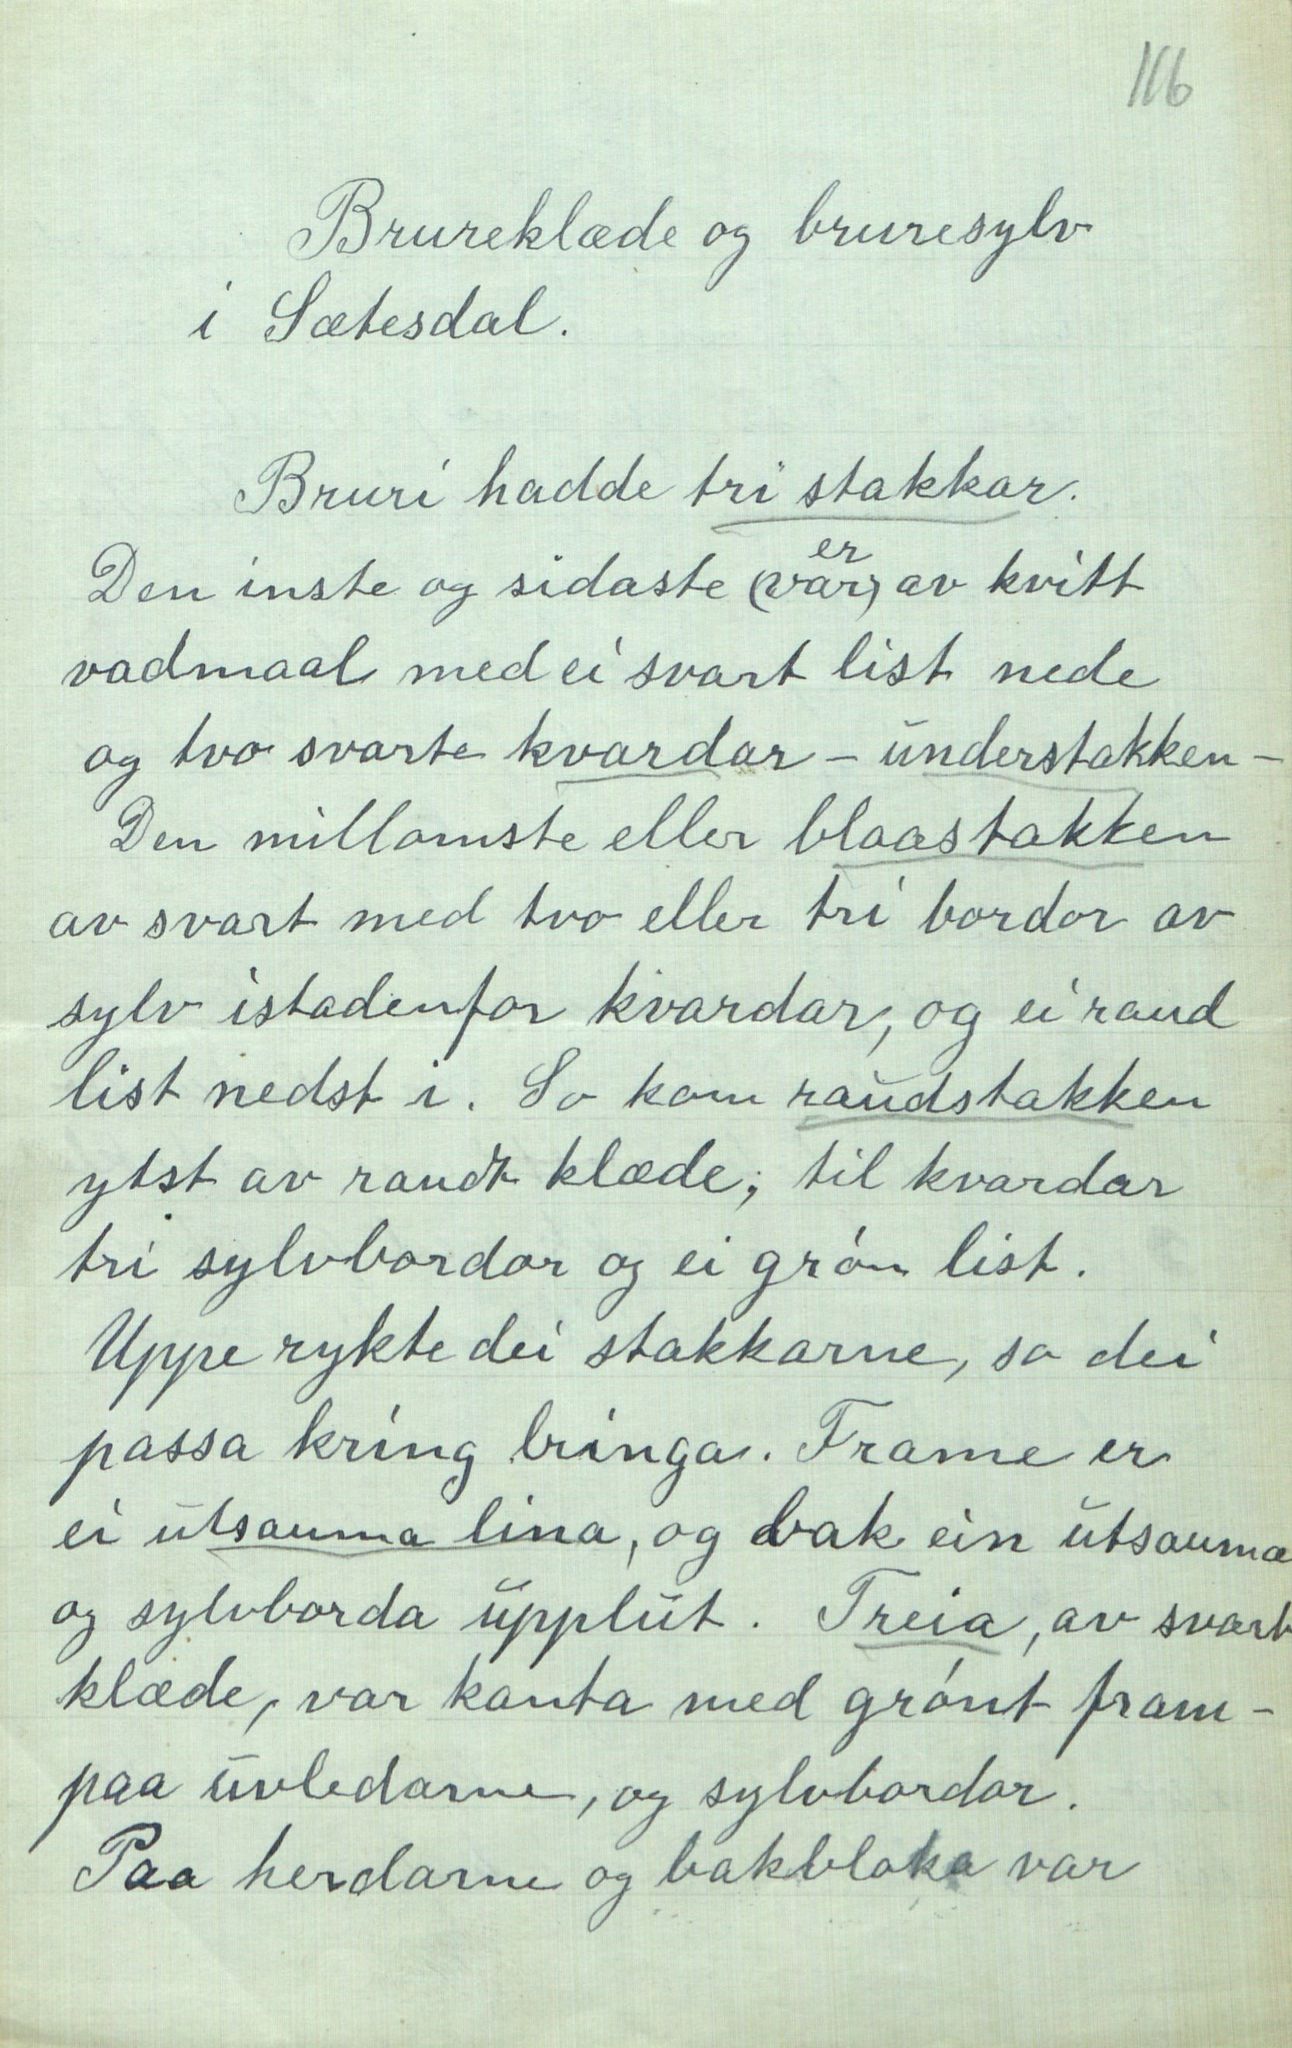 116
Brureklæde og bruresylv
i Sætesdal.
Bruri hadde tri stakkar.
er
Den inste og sidaste (var) av kvitt
vadmaal med ei svart list nede
og tvo svarte kvardar - understakken -
Den millomste eller blaastakken
av svart med tvo eller tri bordor av
sylv istadenfor kvardar, og ei raud
list nedst i. So kom raudstakken
ytst av raudt klæde; til kvardar
tri sylvbordor og ei grøn list.
Uppe rykte dei stakkarne, so dei
passa kring bringa. Frame er
ei utsauma lina, og bak ein utsauma
og sylvborda upplut. Treia, av svart
klæde, var kanta med grønt fram-
paa uvledarne, og sylvbordor.
Paa herdarne og bakbloka var